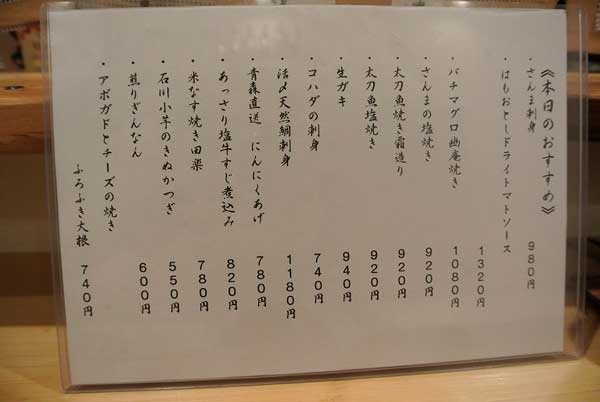 《本日のおすすめ》
・さんま刺身 980円
・はもおとしドライトマトソース 1320円
・バチマグロ幽庵焼き 1080円
・さんまの塩焼き 920円
・太刀魚焼き霜造り 920円
・太刀魚塩焼き 920円
・生ガキ 940円
・コハダの刺身 740円
・活〆天然鯛刺身 1180円
・青森直送 にんにくあげ 780円
・あっさり塩牛すじ煮込み 820円
・米なす焼き田楽 780円
・石川小芋のきぬかつぎ 550円
・煎りぎんなん 600円
・アボガドとチーズの焼き
ふろふき大根 740円